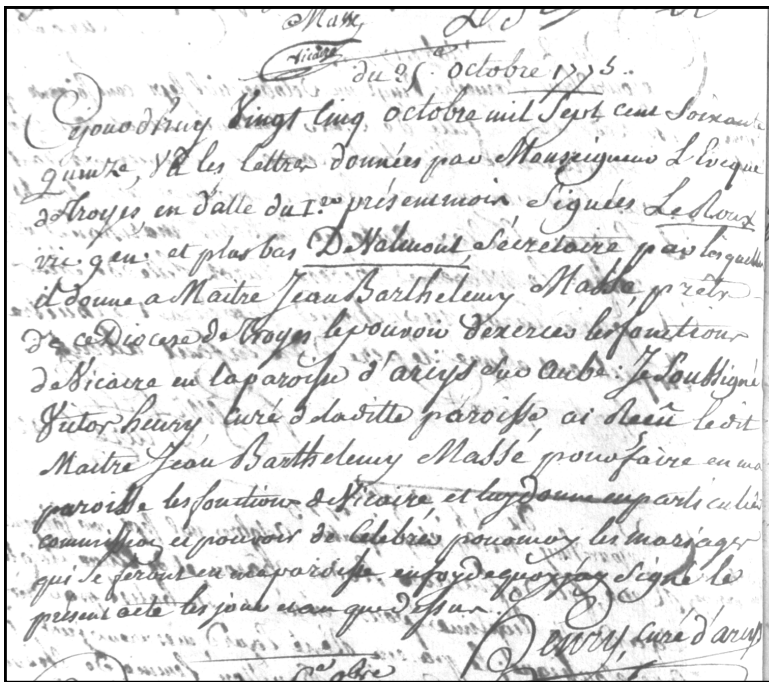 Masse
Vicaire
du 25 octobre 1775.
Cejourd'huy Vingt Cinq octobre mil Sept cent Soixante
quinze, Vû les lettres données par Monseigneur L'Evêque
de Troyes, en datte du 1er présent mois Signées Le Roux
vic. gen. et plus bas De Valmont, Sécretaire par lesquelles
il donne a Maitre Jean Barthelemy Masse, prêtre
de ce Diocese de Troyes, le pouvoir d'exercer les fonctions
de Vicaire en la paroisse d'arcys sur aube: Je Soussigné
Victor henry, curé de laditte paroisse, ai Reçû le dit
Maitre Jean Barthelemy Massé pour faire en ma
paroisse les fonctions de Vicaire, et luy donne en particulier
commission et pouvoir de Celebrer pour moy les mariages
qui se feront en ma paroisse. en foy de quoy j'ay Signé le
présent acte les jour et an que dessus.
Henry, curé d'arcys